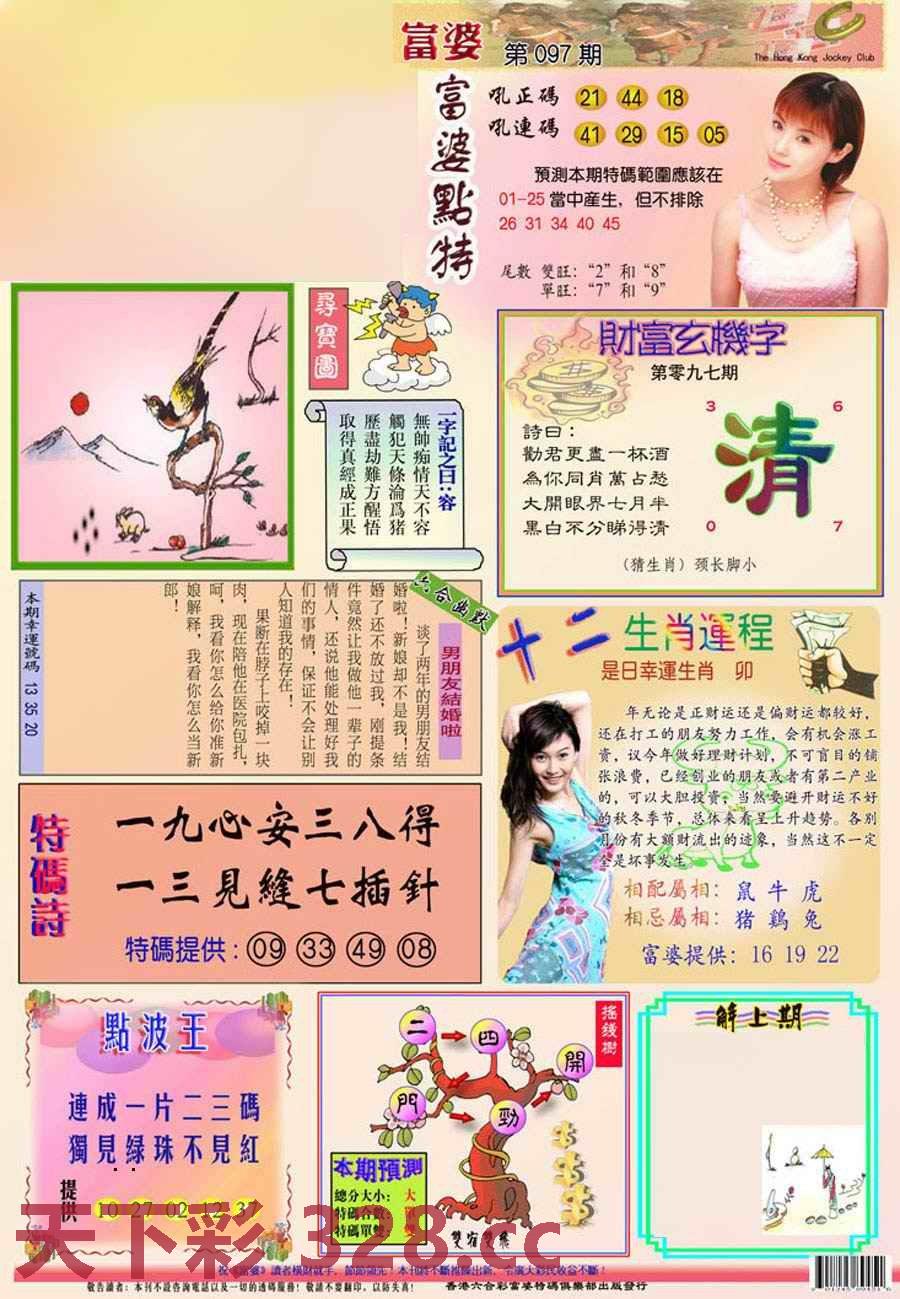 富婆 第097期
The Hong Kong Jockey Club
富婆點特
吼正碼 21 44 18
吼連碼 41 29 15 05
預測本期特碼範圍應該在
01-25當中産生，但不排除
26 31 34 40 45
尾數 雙旺：“2”和“8”
單旺：“7”和“9”
尋寶圖
一字記之曰：容
無師痴情天不容
觸犯天條淪爲猪
歷盡劫難方醒悟
取得真經成正果
財富玄機字
第零九七期
詩曰：
勸君更盡一杯酒
為你同肖萬占愁
大開眼界七月半
黑白不分睇得清
3 6
清
0 7
（猜生肖）颈长脚小
六合幽默
男朋友結婚啦
谈了两年的男朋友结
婚啦！新娘却不是我！结
婚了还不放过我，刚提条
件竟然让我做他一辈子的
情人，还说他能处理好我
们的事情，保证不会让别
人知道我的存在！
果断在脖子上咬掉一块
肉，现在陪他在医院包扎，
呵，我看你怎么给你准新
娘解释，我看你怎么当新
郎！
本期幸運號碼 13 35 20
十二生肖運程
是日幸運生肖 卯
年无论是正财运还是偏财运都较好，
还在打工的朋友努力工作，会有机会涨工
资，议今年做好理财计划，不可盲目的铺
张浪费，已经创业的朋友或者有第二产业
的，可以大胆投资，当然要避开财运不好
的秋冬季节，总体来看呈上升趋势。各别
月份有大额财流出的迹象，当然这不一定
全是坏事发生
相配屬相：鼠 牛 虎
相忌屬相：猪 鷄 兔
富婆提供：16 19 22
特碼詩
一九心安三八得
一三見縫七插針
特碼提供：09 33 49 08
點波王
連成一片二三碼
獨見緑珠不見紅
提供 10 27 02 12 37
搖錢樹
二 四 開 門 勁
本期預測
總分大小：大
特碼合數：單
特碼單雙：雙
雙宿雙飛
解上期
天下彩 328.cc
祝《富婆》讀者橫財就手，節節領先！本刊將不斷推陳出新，令廣大彩民收益不斷！
敬告讀者：本刊不設咨詢電話以及一切的透碼服務！敬請不要翻印，以防失真！ 香港六合彩富婆特碼俱樂部出版發行